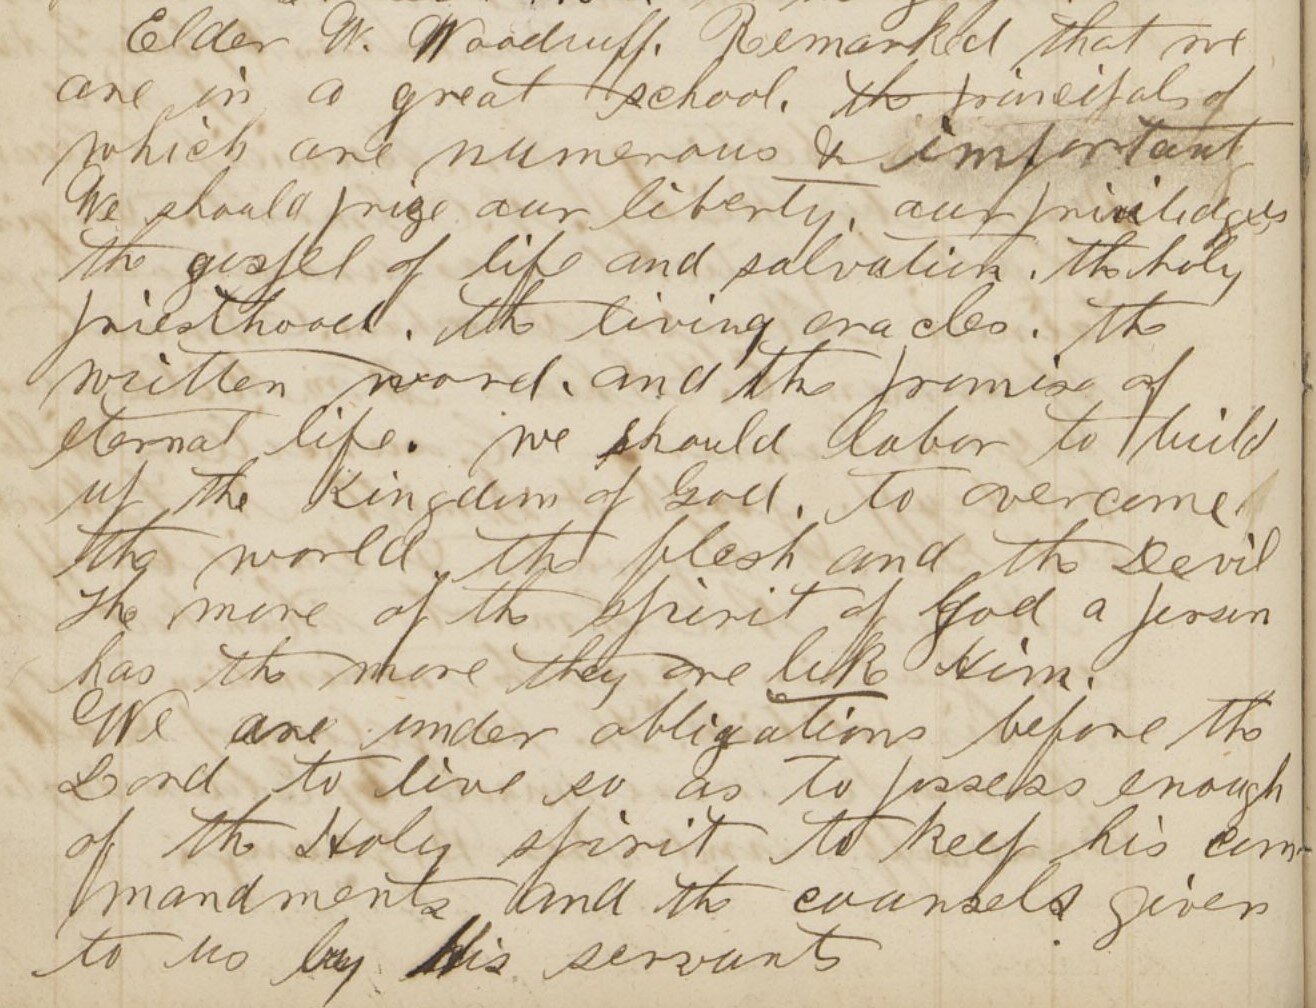 Elder W. Woodruff. Remarked that we
are in a great school. the principals of
which are numerous & important
We should prize our liberty. our priviledges
the gospel of life and salvation. the holy
priesthood. the living oracles. the
written word. and the promise of
eternal life. we should labor to build
up the Kingdom of God. to overcome
the world, the flesh and the Devil
the more of the spirit of God a person
has the more they are like Him.
We are under obligations before the
Lord to live so as to possess enough
of the Holy spirit to keep his com-
mandments and the counsels given
to us by His servants